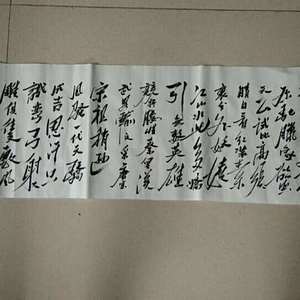 原驰蜡象欲与
天公试比高须
晴日看红装素
裹分外妖娆
江山如此多娇
引无数英雄
竞折腰惜秦皇汉
武略输文采唐
宗宋祖稍逊
风骚一代天骄
成吉思汗只
识弯弓射大
雕俱往矣数风